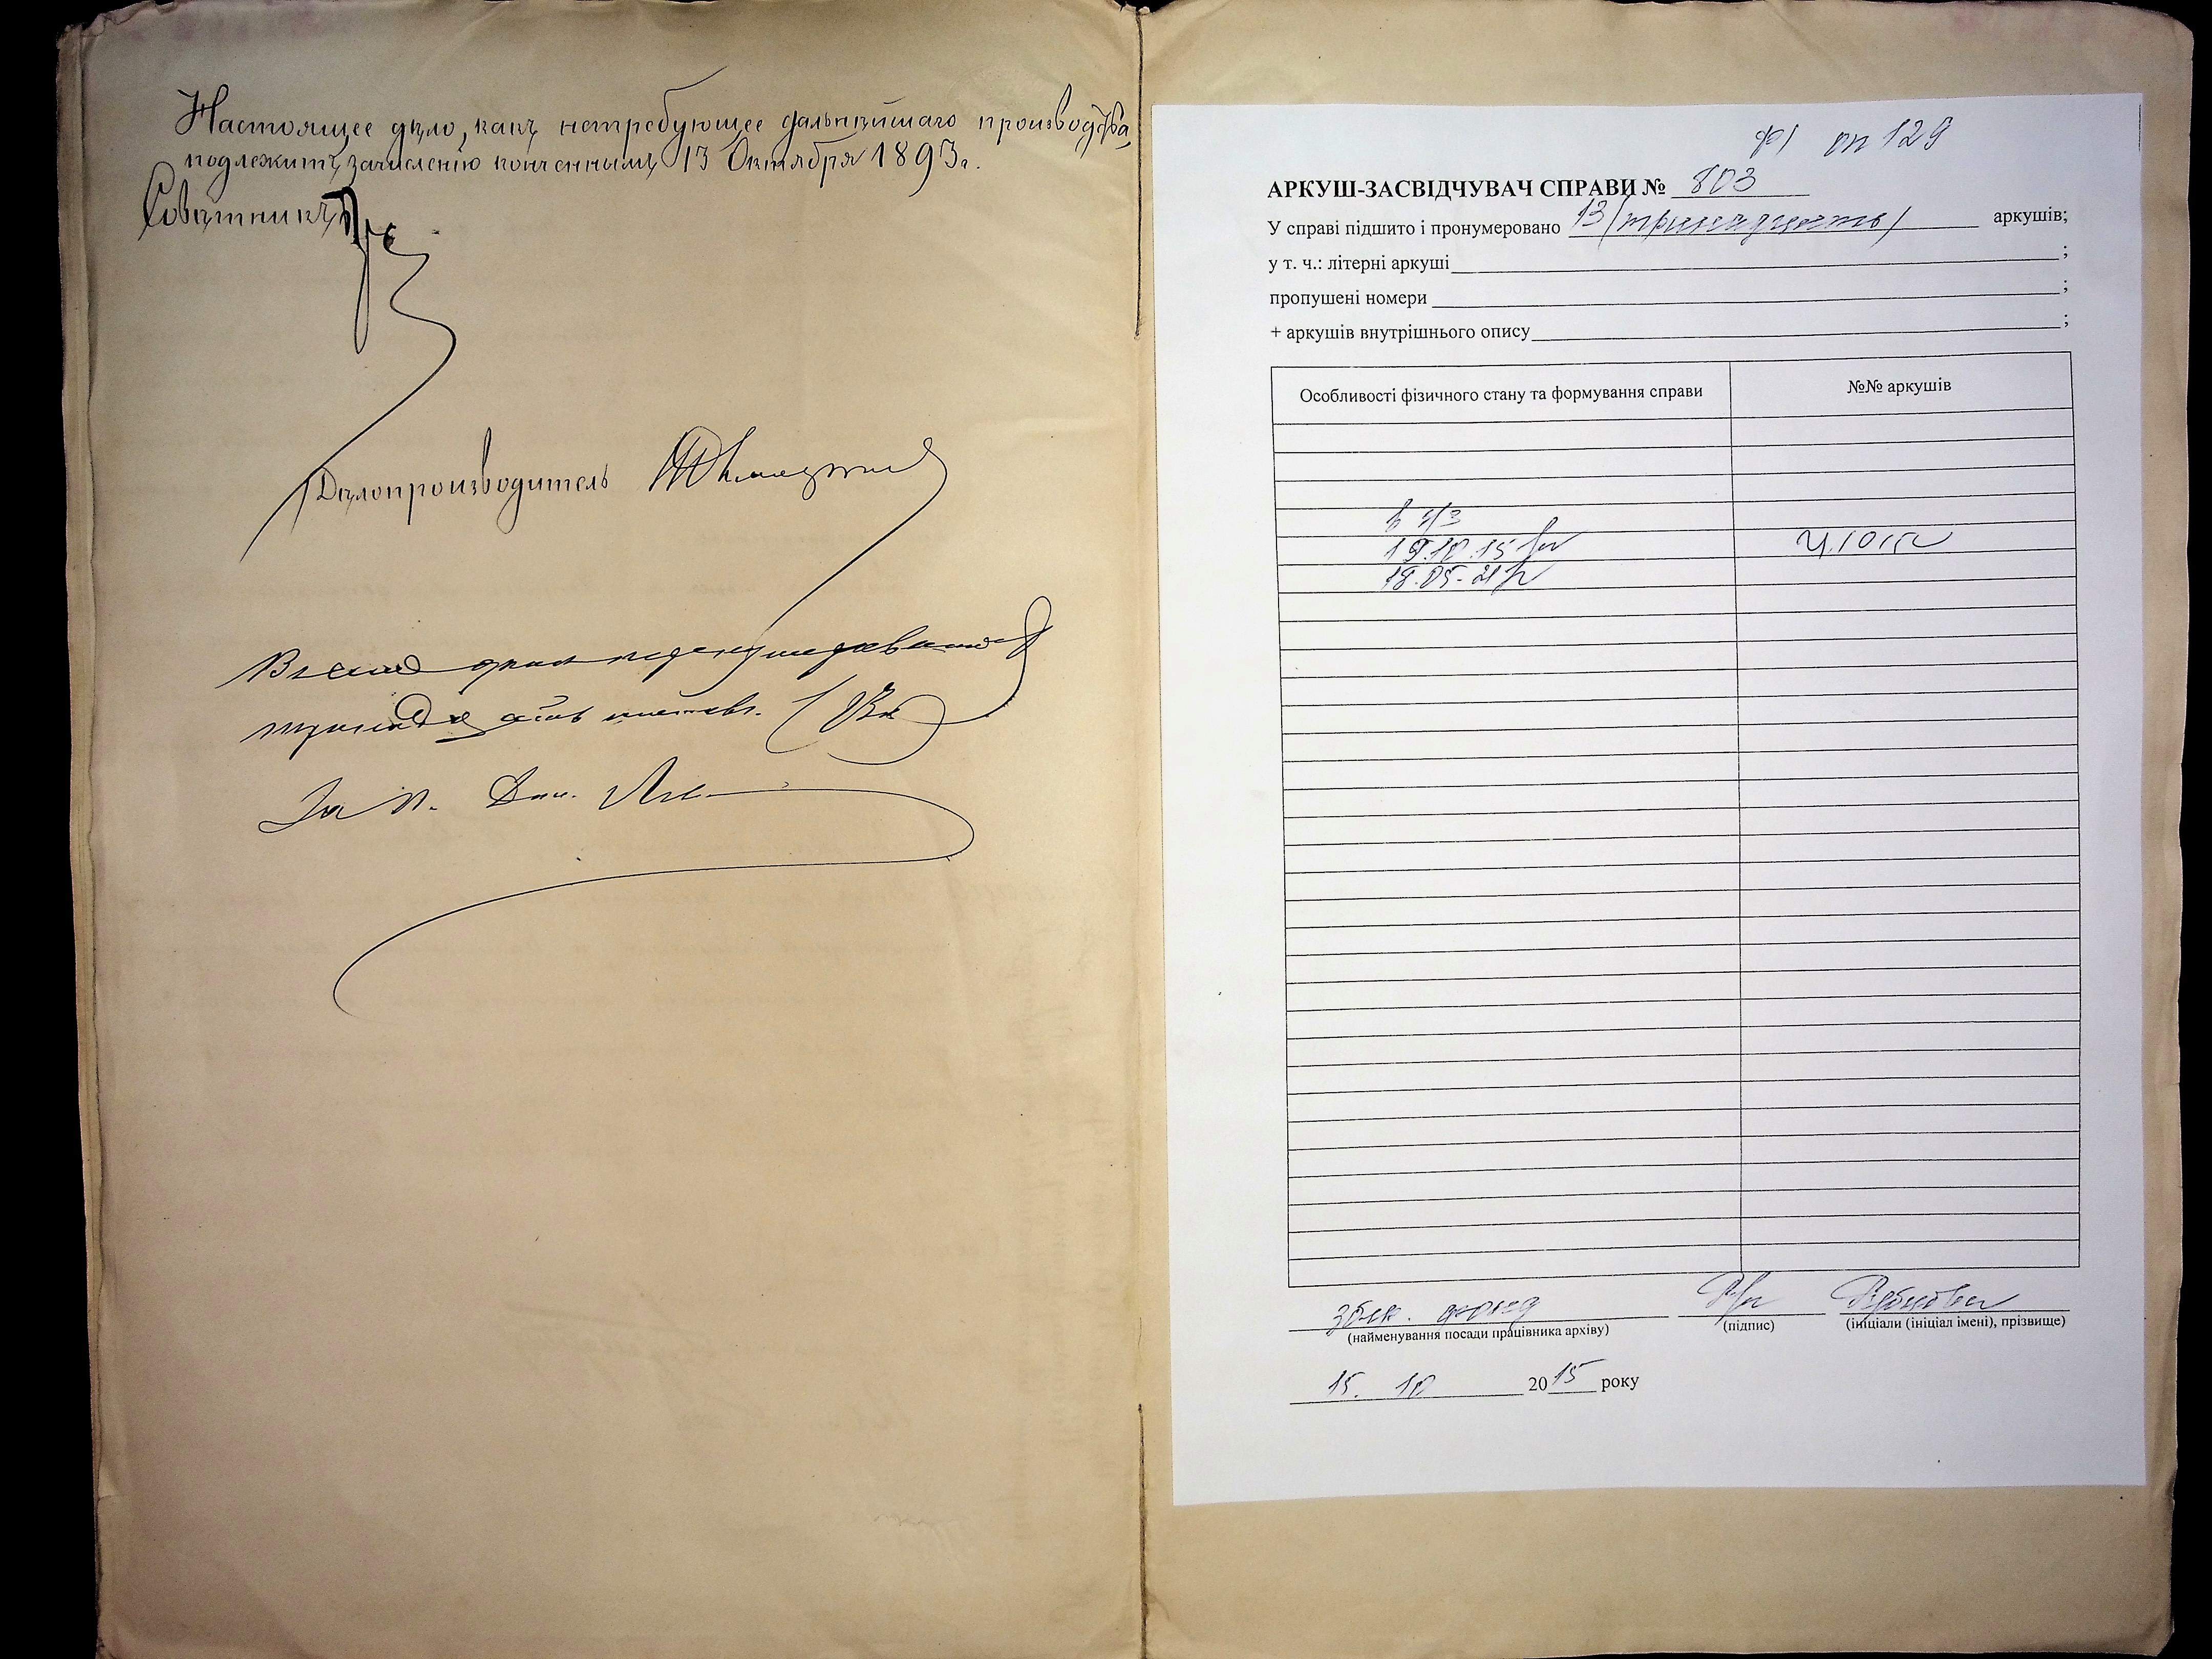 Настоящее дѣло, какъ нетребующее дальнѣйшаго производства,
подлежитъ зачисленію конченнымъ 13 Октября 1893 г.
Совѣтникъ
Дѣлопроизводитель
Въ семъ дѣлѣ перенумерованныхъ
тринадцать листовъ.
За
ф 1 оп 129
АРКУШ-ЗАСВІДЧУВАЧ СПРАВИ № 803
У справі підшито і пронумеровано 13 /тринадцять/ аркушів;
у т. ч.: літерні аркуші ;
пропущені номери ;
+ аркушів внутрішнього опису ;
Особливості фізичного стану та формування справи №№ аркушів
19.10.15
18.05.21
зб.
(найменування посади працівника архіву) (підпис) (ініціали (ініціал імені), прізвище)
15. 10 2015 року